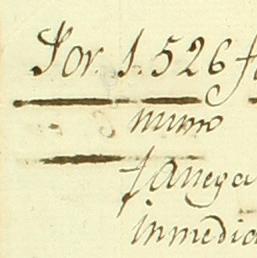 Por 1.526 fa
mimo
fanega
inmedia